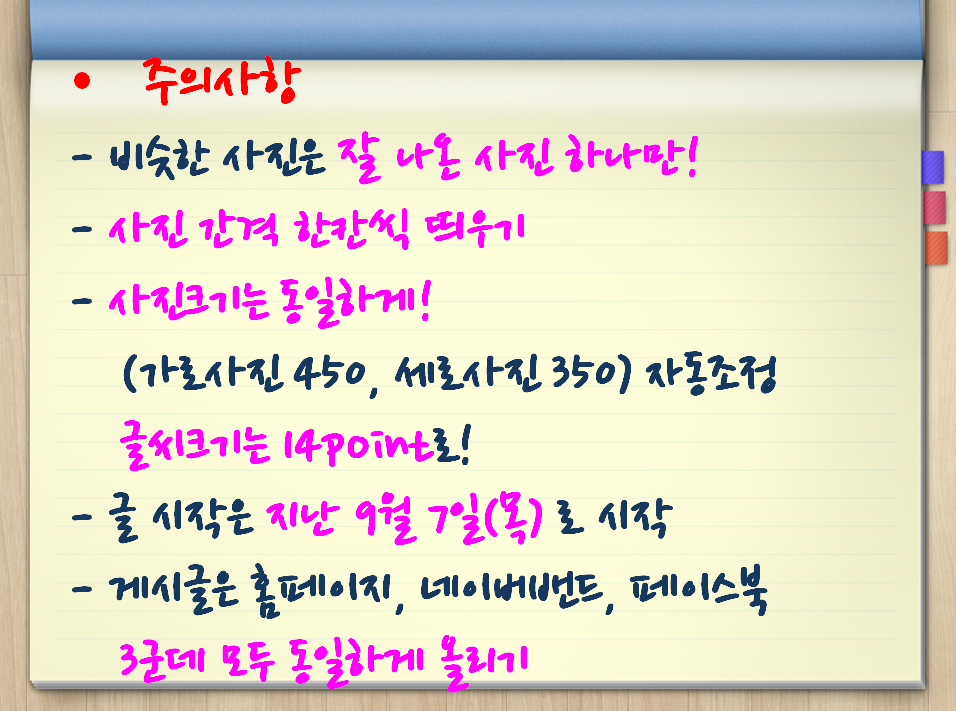 • 주의사항
- 비슷한 사진은 잘 나온 사진 하나만!
- 사진 간격 한칸씩 띄우기
- 사진크기는 동일하게!
(가로사진 450, 세로사진 350) 자동조정
글씨크기는 14point로!
- 글 시작은 지난 9월 7일(목) 로 시작
- 게시글은 홈페이지, 네이버밴드, 페이스북
3군데 모두 동일하게 올리기